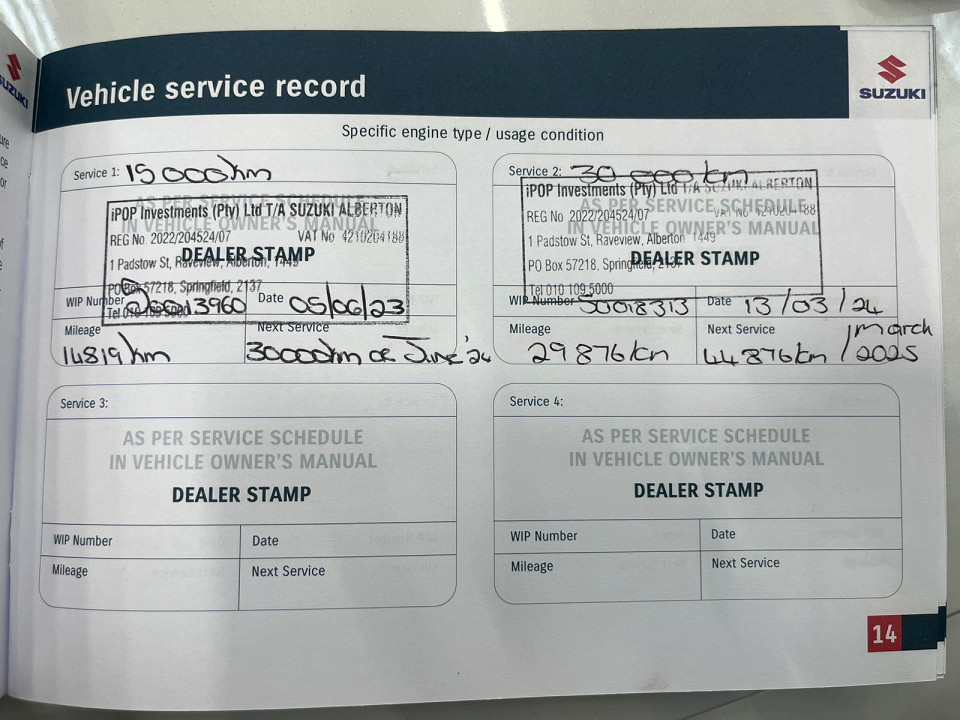 Vehicle service record
SUZUKI
SUZUKI
Specific engine type / usage condition
Service 1: 15 000km
AS PER SERVICE SCHEDULE
IN VEHICLE OWNER'S MANUAL
DEALER STAMP
iPOP Investments (Pty) Ltd T/A SUZUKI ALBERTON
REG No. 2022/204524/07 VAT No 4210204188
1 Padstow St, Raveview, Alberton, 1449
PO Box 57218, Springfield, 2137
Tel 010 109 5000
WIP Number Date 05/06/23
Mileage Next Service
14819 km 30000km or June '24
Service 2: 30 000 km
AS PER SERVICE SCHEDULE
IN VEHICLE OWNER'S MANUAL
DEALER STAMP
iPOP Investments (Pty) Ltd T/A SUZUKI ALBERTON
REG No 2022/204524/07 VAT No 4210204188
1 Padstow St, Raveview, Alberton 1449
PO Box 57218, Springfield, 2137
Tel 010 109 5000
WIP Number Date 13/03/24
Mileage Next Service
29 876 km 44 876 km / March
2025
Service 3:
AS PER SERVICE SCHEDULE
IN VEHICLE OWNER'S MANUAL
DEALER STAMP
WIP Number Date
Mileage Next Service
Service 4:
AS PER SERVICE SCHEDULE
IN VEHICLE OWNER'S MANUAL
DEALER STAMP
WIP Number Date
Mileage Next Service
14